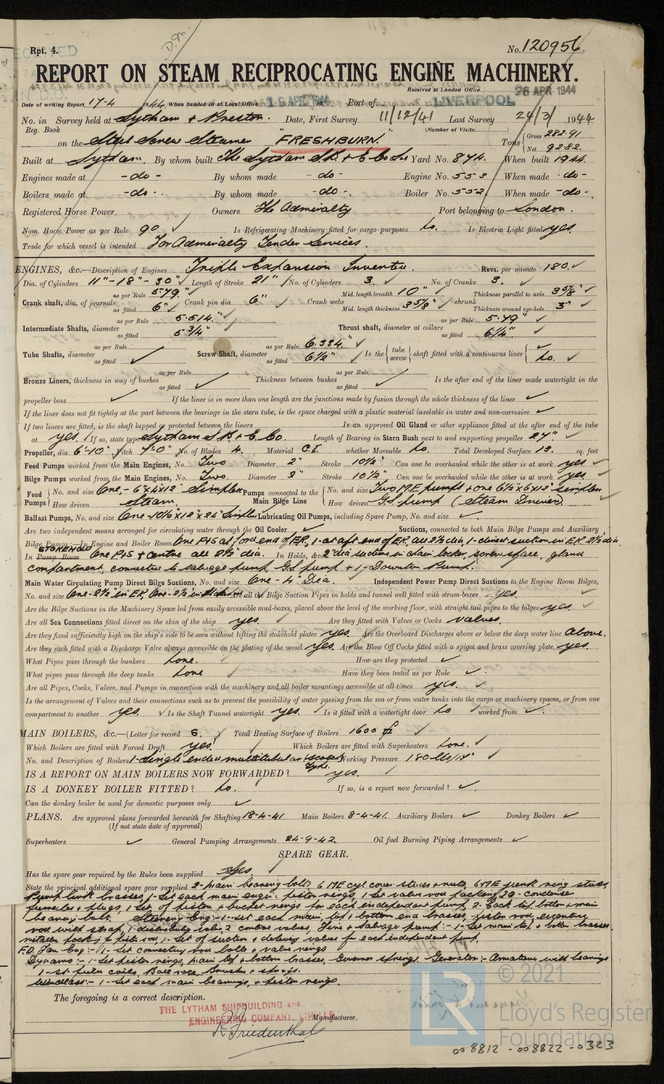 Rpt. 4.
No. 120956.
REPORT ON STEAM RECIPROCATING ENGINE MACHINERY.
Received at London Office 26 APR 1944
Date of writing Report 17-4 1944 When handed in at Local Office 19 APR 1944 Port of LIVERPOOL
No. in Reg. Book Survey held at Lytham & Preston. Date, First Survey 11/12/41 Last Survey 24/3/1944
(Number of Visits)
on the Steel Screw Steamer "FRESHBURN." Tons Gross 282.91 Net 92.82
Built at Lytham. By whom built The Lytham S.B. & E. Co. Ltd Yard No. 874. When built 1944.
Engines made at -do- By whom made -do- Engine No. 553 When made -do-
Boilers made at -do- By whom made -do- Boiler No. 552 When made -do-
Registered Horse Power. Owners The Admiralty Port belonging to London.
Nom. Horse Power as per Rule 90 Is Refrigerating Machinery fitted for cargo purposes No. Is Electric Light fitted yes
Trade for which vessel is intended For Admiralty Tender Services.
ENGINES, &c.—Description of Engines Triple Expansion Inverted Revs. per minute 180.
Dia. of Cylinders 11"-18"-30" Length of Stroke 21" No. of Cylinders 3 No. of Cranks 3.
Crank shaft, dia. of journals as per Rule 5.79" as fitted 6" Crank pin dia. 6" Crank webs Mid. length breadth 10" Mid. length thickness 3 5/8" shrunk Thickness parallel to axis 3 5/8" Thickness around eye-hole 3"
Intermediate Shafts, diameter as per Rule 5.514" as fitted 5 3/4" Thrust shaft, diameter at collars as per Rule 5.79" as fitted 6 1/4"
Tube Shafts, diameter as per Rule as fitted Screw Shaft, diameter as per Rule 6.334" as fitted 6 1/2" Is the { tube screw } shaft fitted with a continuous liner { No.
Bronze Liners, thickness in way of bushes as per Rule as fitted Thickness between bushes as per Rule as fitted Is the after end of the liner made watertight in the
propeller boss If the liner is in more than one length are the junctions made by fusion through the whole thickness of the liner
If the liner does not fit tightly at the part between the bearings in the stern tube, is the space charged with a plastic material insoluble in water and non-corrosive
If two liners are fitted, is the shaft lapped or protected between the liners Is an approved Oil Gland or other appliance fitted at the after end of the tube
yes. If so, state type Lytham S.B. & E. Co. Length of Bearing in Stern Bush next to and supporting propeller 27"
Propeller, dia. 6'-10" Pitch 7'-0" No. of Blades 4. Material C.I. whether Moveable No Total Developed Surface 18. sq. feet
Feed Pumps worked from the Main Engines, No. Two Diameter 2" Stroke 10 1/2" Can one be overhauled while the other is at work yes
Bilge Pumps worked from the Main Engines, No. Two Diameter 2" Stroke 10 1/2" Can one be overhauled while the other is at work yes
Feed Pumps { No. and size One - 6x4x12" Simplex How driven Steam Pumps connected to the Main Bilge Line { No. and size Two M.E. pumps & one 6 1/2 x 6 x 12 simplex How driven G.S. pump (Steam Driven)
Ballast Pumps, No. and size Lubricating Oil Pumps, including Spare Pump, No. and size
Are two independent means arranged for circulating water through the Oil Cooler Suctions, connected to both Main Bilge Pumps and Auxiliary
Bilge Pumps—In Engine and Boiler Room One P&S at for'd end of E.R. 1-at aft end of E.R. all 2 1/2 dia. 1-direct suction in E.R. 2 1/2 dia.
STOKEHOLD One P&S & centre all 2 1/2" dia. In Holds, &c. 2" dia suctions in chain locker, screw space, gland
compartment, connected to Salvage pump, G.S. pump & 1-Downton Pump.
Main Water Circulating Pump Direct Bilge Suctions, No. and size One - 4" Dia. Independent Power Pump Direct Suctions to the Engine Room Bilges,
No. and size One-2 1/2 in E.R. Are all the Bilge Suction Pipes in holds and tunnel well fitted with strum-boxes yes.
Are the Bilge Suctions in the Machinery Space led from easily accessible mud-boxes, placed above the level of the working floor, with straight tail pipes to the bilges yes.
Are all Sea Connections fitted direct on the skin of the ship yes. Are they fitted with Valves or Cocks valves.
Are they fixed sufficiently high on the ship's side to be seen without lifting the stokehold plates yes. Are the Overboard Discharges above or below the deep water line above.
Are they each fitted with a Discharge Valve always accessible on the plating of the vessel yes. Are the Blow Off Cocks fitted with a spigot and brass covering plate yes.
What Pipes pass through the bunkers None. How are they protected
What pipes pass through the deep tanks None Have they been tested as per Rule
Are all Pipes, Cocks, Valves, and Pumps in connection with the machinery and all boiler mountings accessible at all times yes.
Is the arrangement of Valves and their connections such as to prevent the possibility of water passing from the sea or from water tanks into the cargo or machinery spaces, or from one
compartment to another yes. Is the Shaft Tunnel watertight yes. Is it fitted with a watertight door No worked from
MAIN BOILERS, &c.—(Letter for record S. Total Heating Surface of Boilers 1600
Which Boilers are fitted with Forced Draft yes. Which Boilers are fitted with Superheaters None.
No. and Description of Boilers 1-single ended multitubular (Scotch) type. Working Pressure 180 lbs/in²
IS A REPORT ON MAIN BOILERS NOW FORWARDED? yes.
IS A DONKEY BOILER FITTED? No. If so, is a report now forwarded?
Can the donkey boiler be used for domestic purposes only
PLANS. Are approved plans forwarded herewith for Shafting 18-4-41 Main Boilers 8-4-41. Auxiliary Boilers Donkey Boilers
(If not state date of approval)
Superheaters General Pumping Arrangements 24-9-42. Oil fuel Burning Piping Arrangements
SPARE GEAR.
Has the spare gear required by the Rules been supplied Yes
State the principal additional spare gear supplied 2-main bearing bolts, 6 ME cyl cover studs & nuts, 6 ME junk ring studs,
1 set each main engine piston rings, 1-set valve rod packing, 20-condenser
ferrules & plugs, 1 set of piston & bucket rings for each independent pump, 2 each top bottom & main
bearing bolts. Steering Eng:- 1-set each main, top & bottom end brasses, piston rod, eccentric
rod with strap, 2 control valves, Fire & Salvage pump:- 1-set main, top & bottom brasses
metallic packing for piston rod, 1-set of suction & delivery valves for each independent pump
F.D. Fan Eng:- 1-set connecting rod bolts & valve rings
Dynamo:- 1-set piston rings, main, top & bottom brasses, Governor springs. Generator:- Armature with bearings
1-set field coils, Ball race, Brushes & springs.
Windlass:- 1-set each main bearings, & piston rings.
The foregoing is a correct description.
THE LYTHAM SHIPBUILDING and
ENGINEERING COMPANY, LIMITED
Manufacturer.
© 2021
Lloyd's Register
Foundation
008812 - 008822 - 0323